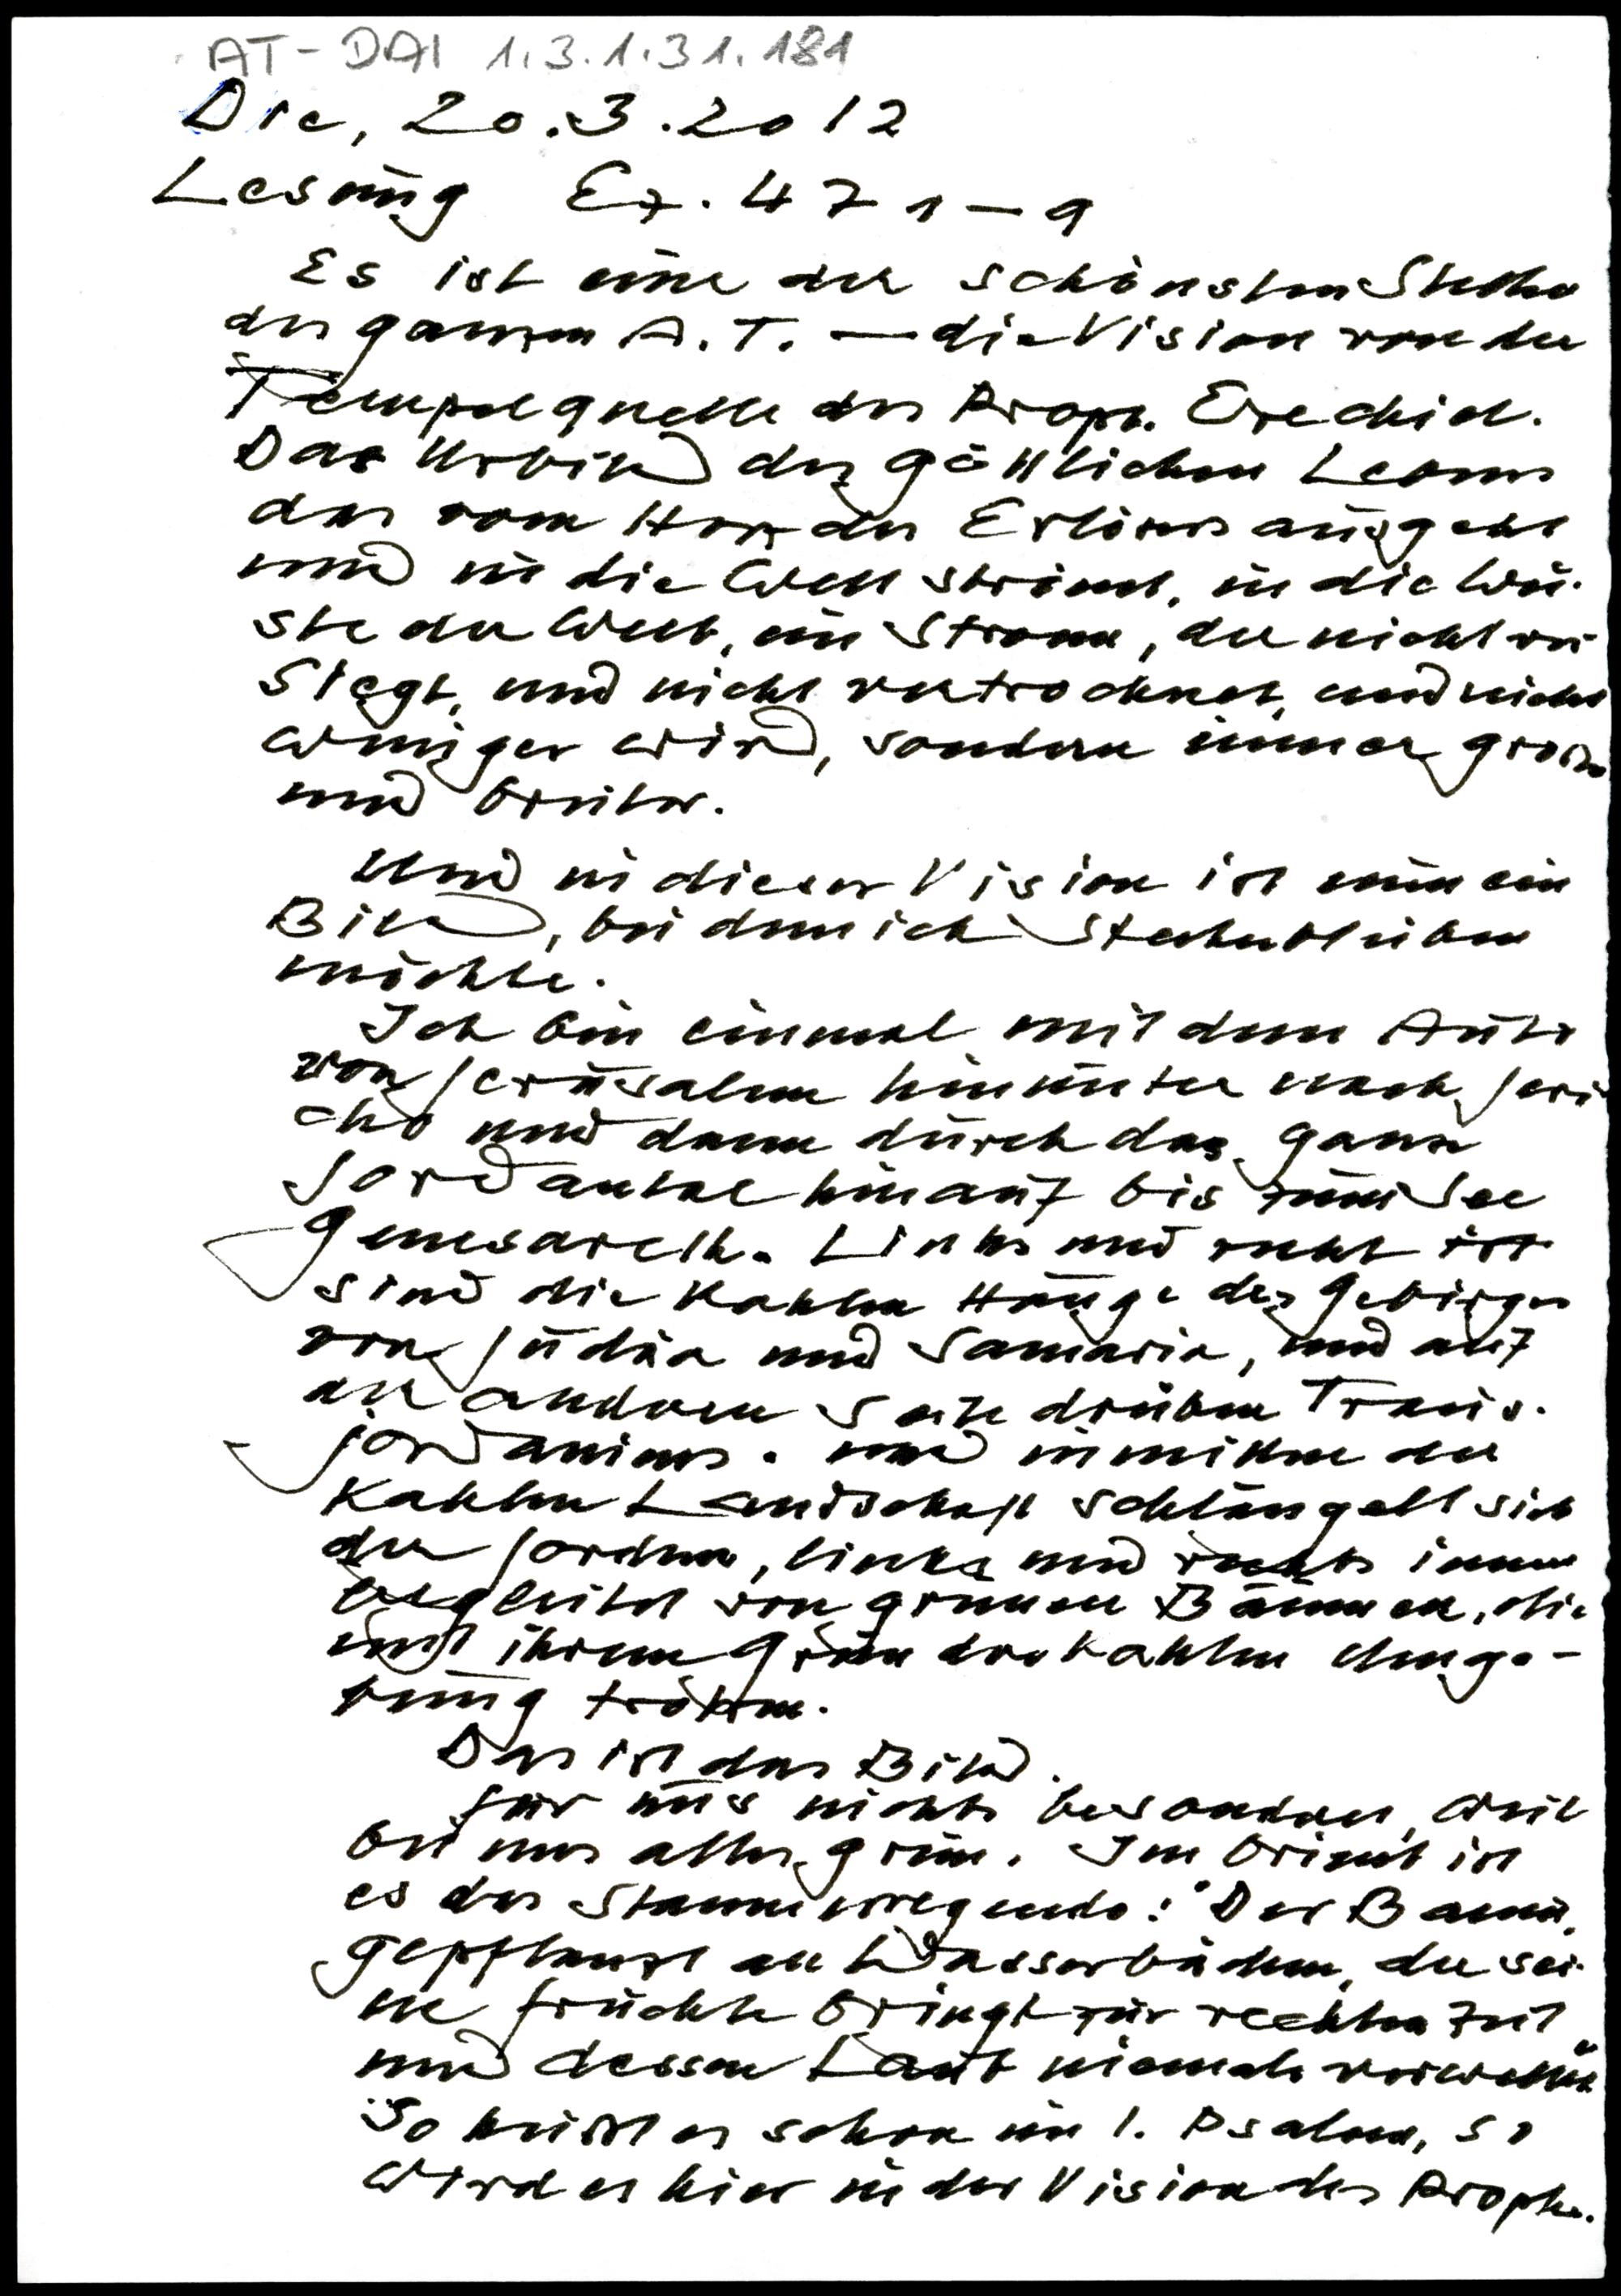 AT-DAI 1.3.1.31.181
Die, 20.3.2012
Lesung Ez. 47 1-9
Es ist eine der schönsten Stellen
des ganzen A.T. — die Vision von der
Tempelquelle des Proph. Ezechiel.
Das Urbild des göttlichen Lebens
das vom Herz des Erlösers ausgeht
und in die Welt strömt, in die Wü-
ste der Welt, ein Strom, der nicht ver
siegt, und nicht vertrocknet, und nicht
weniger wird, sondern immer größer
und breiter.
Und in dieser Vision ist nun ein
Bild, bei dem ich stehenbleiben
möchte.
Ich bin einmal mit dem Auto
von Jerusalem hinunter nach Jeri
cho und dann durch das ganze
Jordantal hinauf bis zum See
Genesareth. Links und recht ist
sind die kahlen Hänge des Gebirges
von Judäa und Samaria, und auf
der anderen Seite drüben Trans-
jordaniens. und inmitten der
kahlen Landschaft schlängelt sich
der Jordan, links und rechts immer
begleitet von grünen Bäumen, die
mit ihrem Grün der kahlen Umge-
bung trotzen.
Das ist das Bild.
für uns nichts besonderes, weil
bei uns alles grün. Im Orient ist
es das Staunenerregende: "Der Baum,
gepflanzt an Wasserbächen, der sei-
ne Früchte bringt zur rechten Zeit
und dessen Laub niemals verwelkt"
So heißt es schon im 1. Psalm, so
wird es hier in der Vision des Proph.